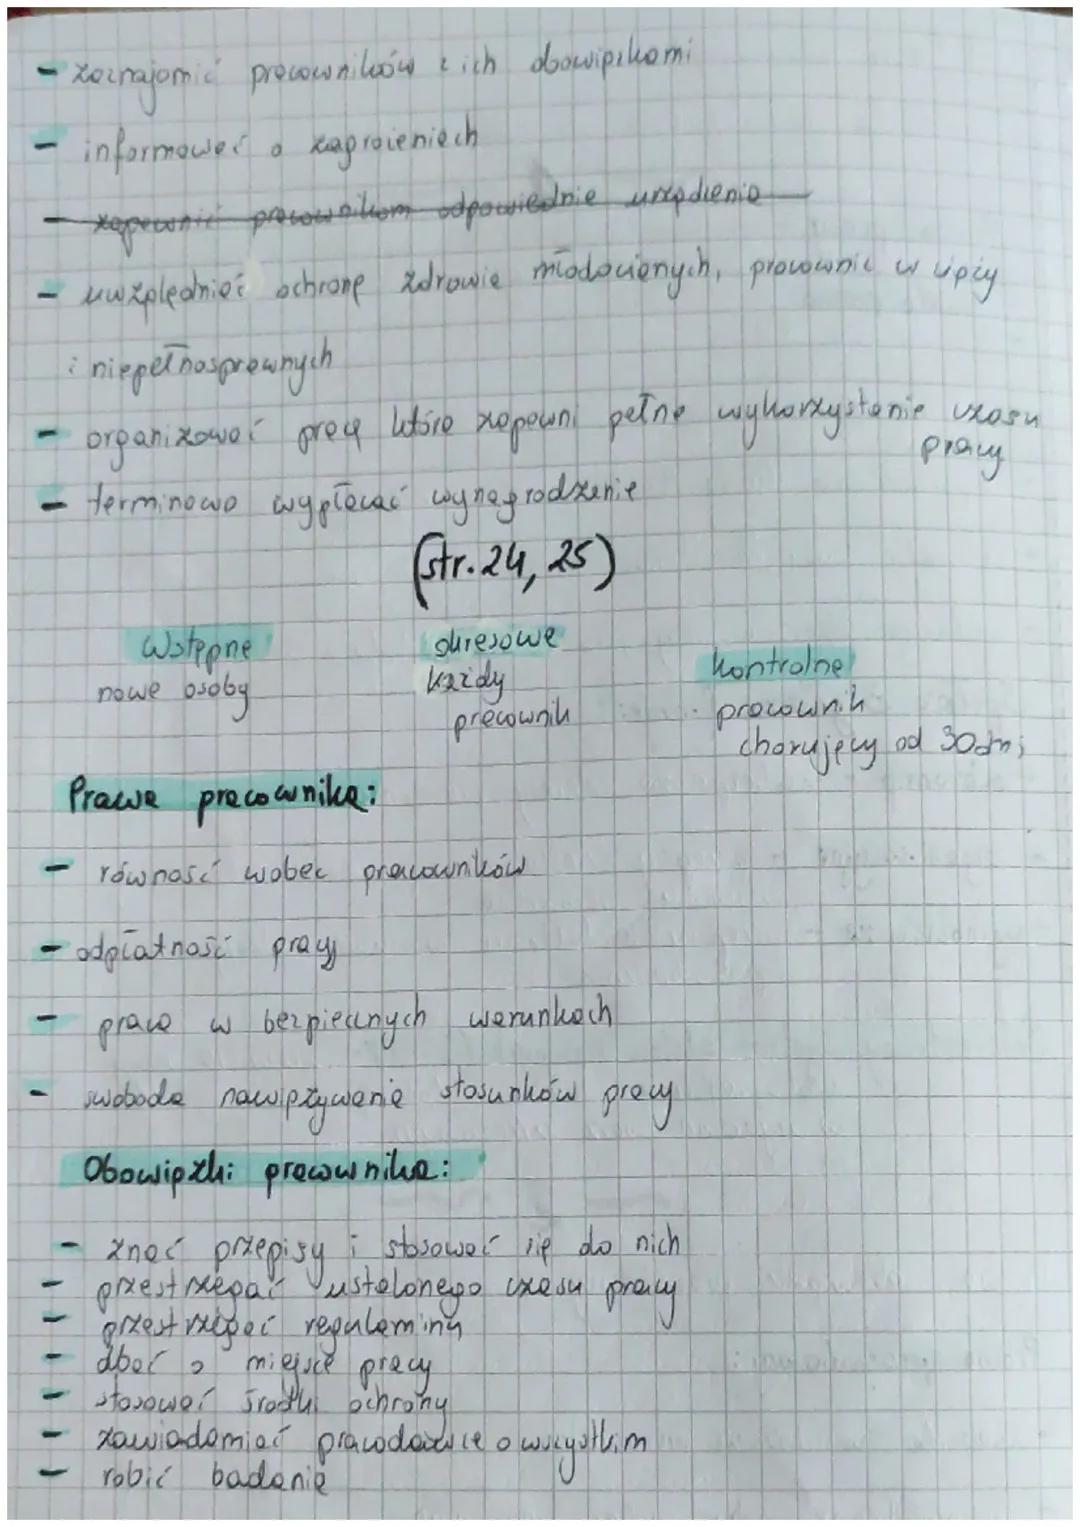 - zaznajomić pracowników z ich obowiązkami
- informować o zagrożeniach
- zapewnić pracownikom odpowiednie urządzenia
- uwzględniać ochronę zdrowia młodocianych, pracownic w ciąży
i niepełnosprawnych
- organizować pracę która zapewni pełne wykorzystanie czasu
pracy
- terminowo wypłacać wynagrodzenie
(str. 24, 25)
Wstępne okresowe kontrolne
nowe osoby każdy pracownik
pracownik chorujący od 30 dni
Prawa pracownika:
- równość wobec pracowników
- odpłatność pracy
- praca w bezpiecznych warunkach
- swoboda nawiązywania stosunków pracy
Obowiązki pracownika:
- znać przepisy i stosować się do nich
- przestrzegać ustalonego czasu pracy
- przestrzegać regulaminu
- dbać o miejsce pracy
- stosować środki ochrony
- zawiadamiać pracodawcę o wszystkim
- robić badania